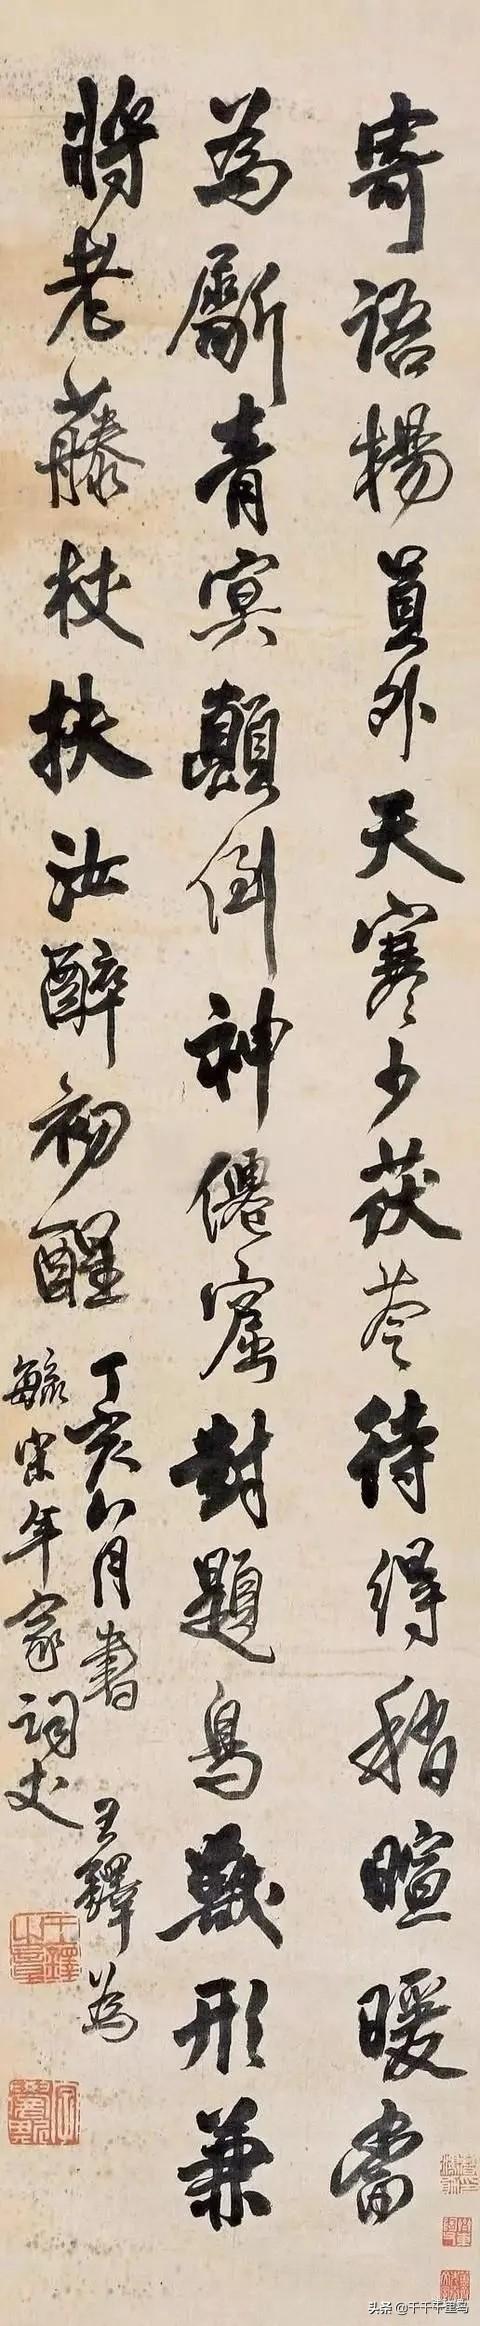 寄語楊員外天寒少茯苓待得稍暄暖當
為斸青冥顛倒神僊窟封題鳥獸形兼
將老藤杖扶汝醉初醒
丁亥八月書王鐸為
毓宋年家詞丈
王鐸之章
头条@千千千里鸟